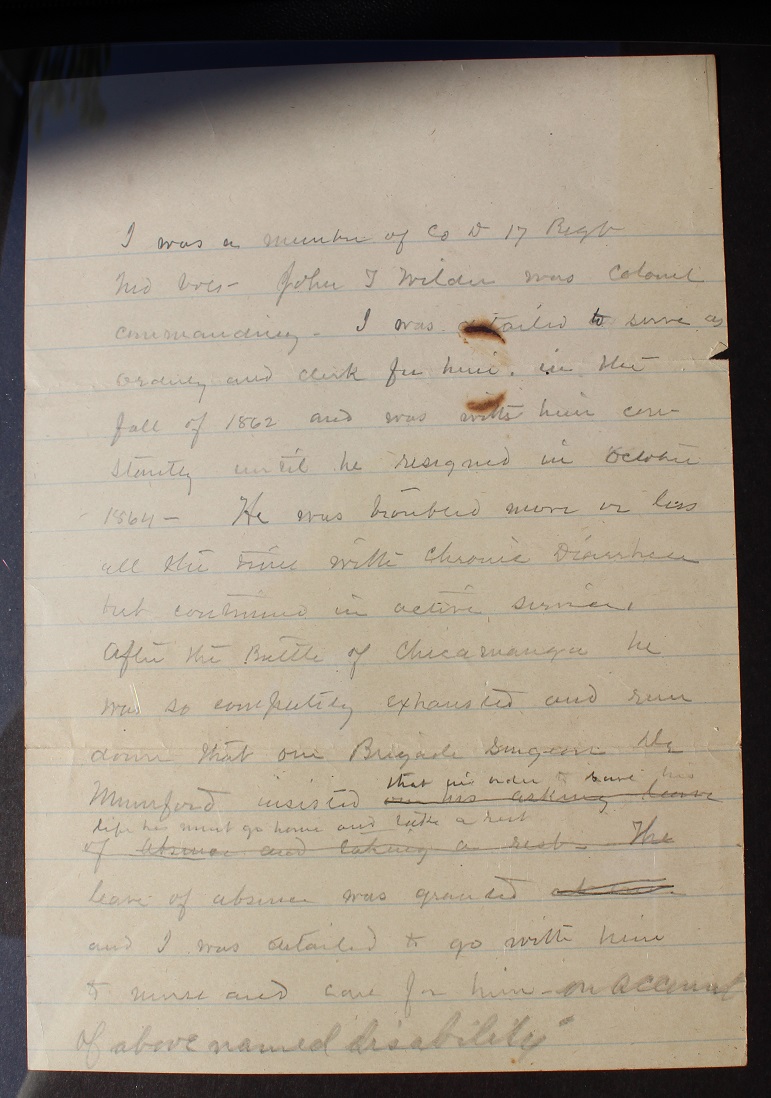 I was a member of Co D 17 Regt
Ind Vols - John T Wilder was Colonel
commanding - I was detailed to serve as
orderly and clerk for him. in the
fall of 1862 and was with him con-
stantly until he resigned in October
1864 - He was troubled more or less
all the time with Chronic Diarrhea
but continued in active service,
After the Battle of Chicamauga he
was so completely exhausted and run
down that our Brigade Surgeon Dr
Munford insisted on his asking leave
that in order to save his
life he must go home and take a rest
of absence and taking a rest - The
leave of absence was granted
and I was detailed to go with him
to nurse and care for him - on account
of above named disability"